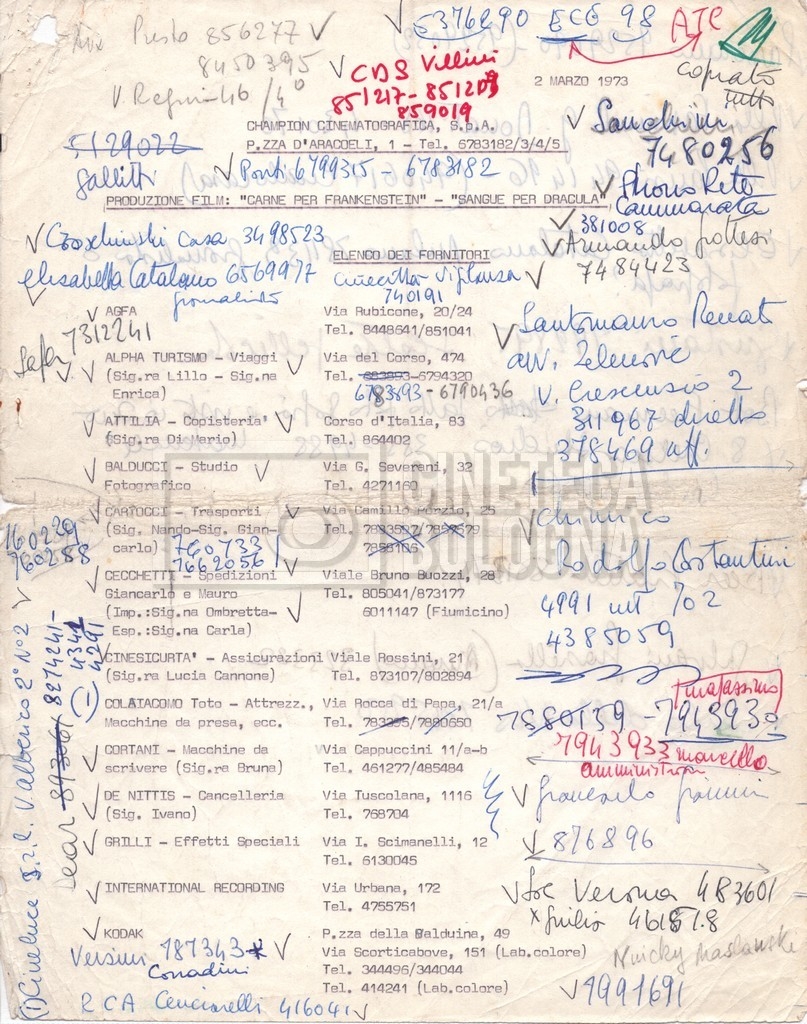 Presto 856277
8450395
5376290 ECE 98
ATC
M
V. Regni 46 /4°
CDS Villini
851217 - 851209
859019
2 MARZO 1973
copiato
tutto
5129022
Gallitti
CHAMPION CINEMATOGRAFICA, S.p.A.
P.ZZA D'ARACOELI, 1 - Tel. 6783182/3/4/5
Ponti 6799315 - 6783182
Sandrini
7480256
PRODUZIONE FILM: "CARNE PER FRANKENSTEIN" - "SANGUE PER DRACULA"
Phono Rete
Cammarata
381008
Armando Grottesi
7484423
casa 3498523
ELENCO DEI FORNITORI
Elisabetta Catalano 6569977
giornalista
Cinecittà Vigilanza
740191
AGFA Via Rubicone, 20/24
Tel. 8448641/851041
7312241
ALPHA TURISMO - Viaggi Via del Corso, 474
(Sig.ra Lillo - Sig.na Tel. 683893-6794320
Enrica) 6783893 - 6790436
Santomauro Renato
avv. Zelenovic
V. Crescenzio 2
311967 diretto
378469 uff.
ATTILIA - Copisteria Corso d'Italia, 83
(Sig.ra Di Mario) Tel. 864402
BALDUCCI - Studio Via G. Severani, 32
Fotografico Tel. 4271160
CARTOCCI - Trasporti Via Camillo Porzio, 25
(Sig. Nando-Sig. Gian- Tel. 7883587/7858579
carlo) 7856106
760733
7662056
160229
760288
CINETECA
BOLOGNA
chimico
Rodolfo Costantini
4991 int 702
4385059
CECCHETTI - Spedizioni Viale Bruno Buozzi, 28
Giancarlo e Mauro Tel. 805041/873177
(Imp.:Sig.na Ombretta- 6011147 (Fiumicino)
Esp.:Sig.na Carla)
CINESICURTA' - Assicurazioni Viale Rossini, 21
(Sig.ra Lucia Cannone) Tel. 873107/802894
COLAIACOMO Toto - Attrezz., Via Rocca di Papa, 21/a
Macchine da presa, ecc. Tel. 783295/7880650
matassimo
7880139 - 7943930
7943933 marcello
amministraz
CORTANI - Macchine da Via Cappuccini 11/a-b
scrivere (Sig.ra Bruna) Tel. 461277/485484
DE NITTIS - Cancelleria Via Tuscolana, 1116
(Sig. Ivano) Tel. 768704
Giancarlo Giannini
876896
GRILLI - Effetti Speciali Via I. Scimanelli, 12
Tel. 6130045
INTERNATIONAL RECORDING Via Urbana, 172
Tel. 4755751
Soc Verona 483601
x Giulio 461518
KODAK P.zza della Balduina, 49
Via Scorticabove, 151 (Lab.colore)
Tel. 344496/344044
Tel. 414241 (Lab.colore)
Versini 787343 *
Corradini
Nuicky Maslanski
4991691
RCA Cenciarelli 416041
(1) Cineluce S.r.l. V. Albenico 2° N°2
Lear 893061 8274241-
4341
4291